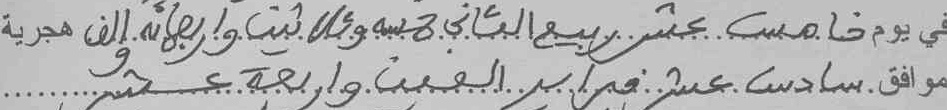 في يوم خامس عشر ربيع الثاني خمسه وثلاثين واربعمائه والف هجرية
موافق سادس عشر فبراير الفين واربعة عشر